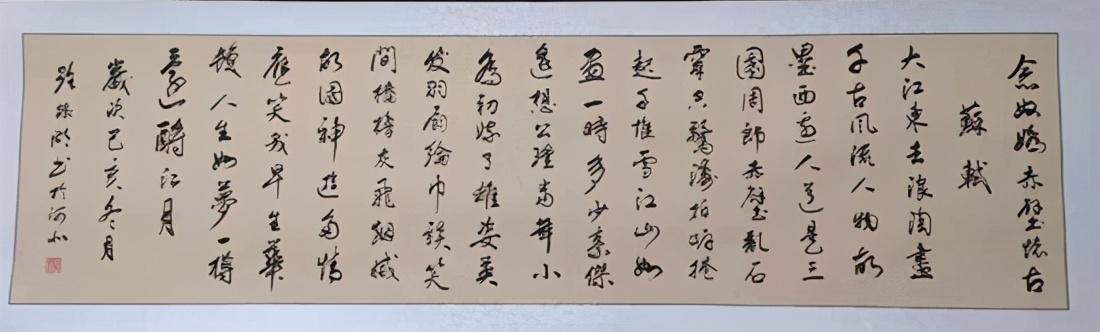 念奴嬌赤壁懷古
蘇軾
大江東去浪淘盡
千古風流人物故
壘西邊人道是三
國周郎赤壁亂石
穿空驚濤拍岸捲
起千堆雪江山如
畫一時多少豪傑
遙想公瑾當年小
喬初嫁了雄姿英
發羽扇綸巾談笑
間檣櫓灰飛烟滅
故國神遊多情
應笑我早生華
髮人生如夢一樽
還酹江月
歲次己亥冬月
书於河北